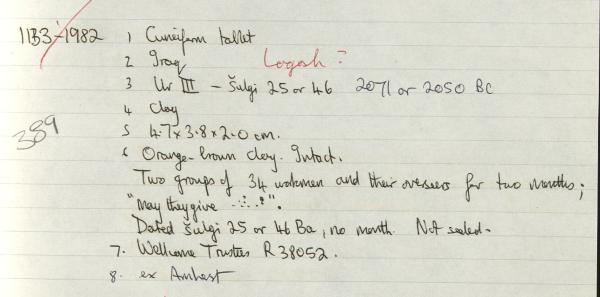 1133-1982 1 Cuneiform tablet
2 Iraq Lagash?
3 Ur III - Šulgi 25 or 46 2071 or 2050 BC
4 Clay
389
5 4.7 x 3.8 x 2.0 cm.
6 Orange-brown clay. Intact.
Two groups of 34 workmen and their overseers for two months;
"may they give ...?".
Dated Šulgi 25 or 46 Ba, no month. Not sealed.
7. Wellcome Trustees R 38052.
8. ex Amherst